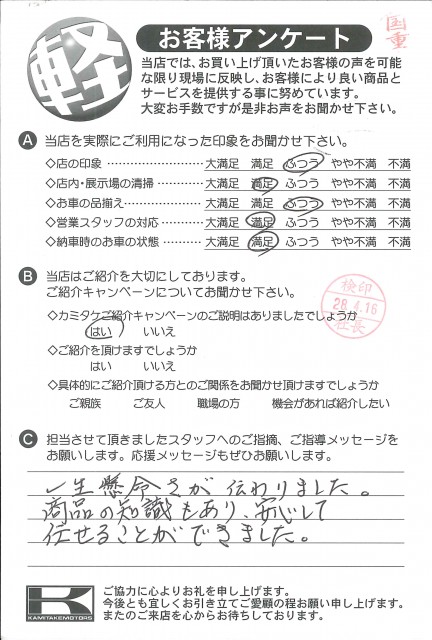 国重
軽
お客様アンケート
当店では、お買い上げ頂いたお客様の声を可能
な限り現場に反映し、お客様により良い商品と
サービスを提供する事に努めています。
大変お手数ですが是非お声をお聞かせ下さい。
A 当店を実際にご利用になった印象をお聞かせ下さい。
◇店の印象 ………………………… 大満足 満足 ふつう やや不満 不満
◇店内・展示場の清掃 ………… 大満足 満足 ふつう やや不満 不満
◇お車の品揃え………………… 大満足 満足 ふつう やや不満 不満
◇営業スタッフの対応 ………… 大満足 満足 ふつう やや不満 不満
◇納車時のお車の状態 ………… 大満足 満足 ふつう やや不満 不満
B 当店はご紹介を大切にしてあります。
ご紹介キャンペーンについてお聞かせ下さい。
◇カミタケご紹介キャンペーンのご説明はありましたでしょうか
はい いいえ
検印
28.4.16
社長
◇ご紹介を頂けますでしょうか
はい いいえ
◇具体的にご紹介頂ける方とのご関係をお聞かせ頂けますでしょうか
ご親族 ご友人 職場の方 機会があれば紹介したい
C 担当させて頂きましたスタッフへのご指摘、ご指導メッセージを
お願いします。応援メッセージもぜひお願いします。
一生懸命さが伝わりました。
商品の知識もあり、安心して
任せることができました。
K
KAMITAKEMOTORS
ご協力に心よりお礼を申し上げます。
今後とも宜しくお引き立てご愛顧の程お願い申し上げます。
またのご来店を心からお待ちしております。